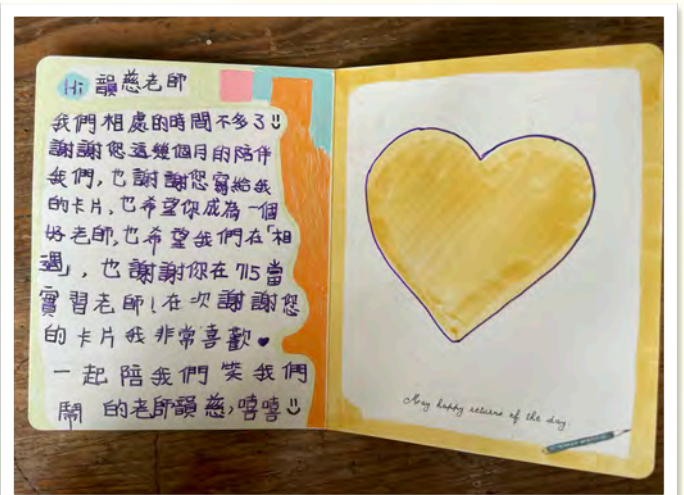 Hi 韻慈老師
我們相處的時間不多了
謝謝您這幾個月的陪伴
我們,也謝謝您寫給我
的卡片,也希望你成為一個
好老師,也希望我們在「相
遇」,也謝謝你在715當
實習老師!在次謝謝您
的卡片我非常喜歡♥
一起陪我們笑我們
鬧 的老師韻慈,嘻嘻
May happy returns of the day.